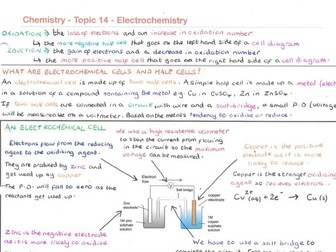 Chemistry - Topic 14 - Electrochemistry
OXIDATION → the loss of electrons and an increase in oxidation number
↳ the more negative half cell that goes on the left hand side of a cell diagram
→ the gain of electrons and a decrease in oxidation number
↳ the more positive half cell that goes on the right hand side of a cell diagram
WHAT ARE ELECTROCHEMICAL CELLS AND HALF CELLS?
An electrochemical cell is made up of two half cells. A simple half cell is made up of a metal
in a solution of a compound containing the metal eg. Cu in CuSO4, Zn in ZnSO4.
If two half cells are connected in a circuit with wire and a salt bridge, a small P.D
will be measurable on a voltmeter. Based on the metals tendency to oxidise or reduce.
AN ELECTROCHEMICAL CELL
We use a high resistance voltmeter
to stop the current from flowing
in the circuit so the maximum
voltage can be measured.
Electrons flow from the reducing
agent to the oxidising agent.
They are produced by zinc and
get used up by copper
The P.D. will fall to zero as the
reactants get used up.
Copper is the positive
electrode as it is more
likely to reduce
Copper is the stronger oxidising
agent so receives electrons.
Cu²⁺(aq) + 2e⁻ → Cu(s)
Electron flow
salt bridge
Zinc electrode
Copper electrode
Zinc is the negative electrode
as it is more likely to oxidise
We have to use a salt bridge to